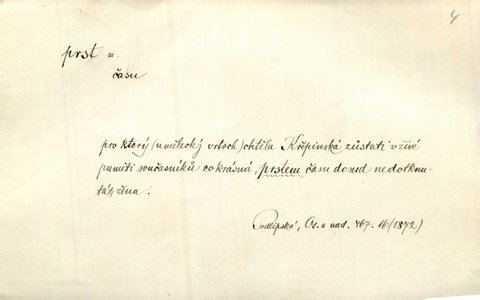 4
prst m.
času
pro který (umělecký vrtoch) chtěla Křepinská zůstati v živé
paměti současníků co krásná, prstem času dosud nedotknu-
tá žena.
Podlipská, Os. a nad. 467. 16 (1872)